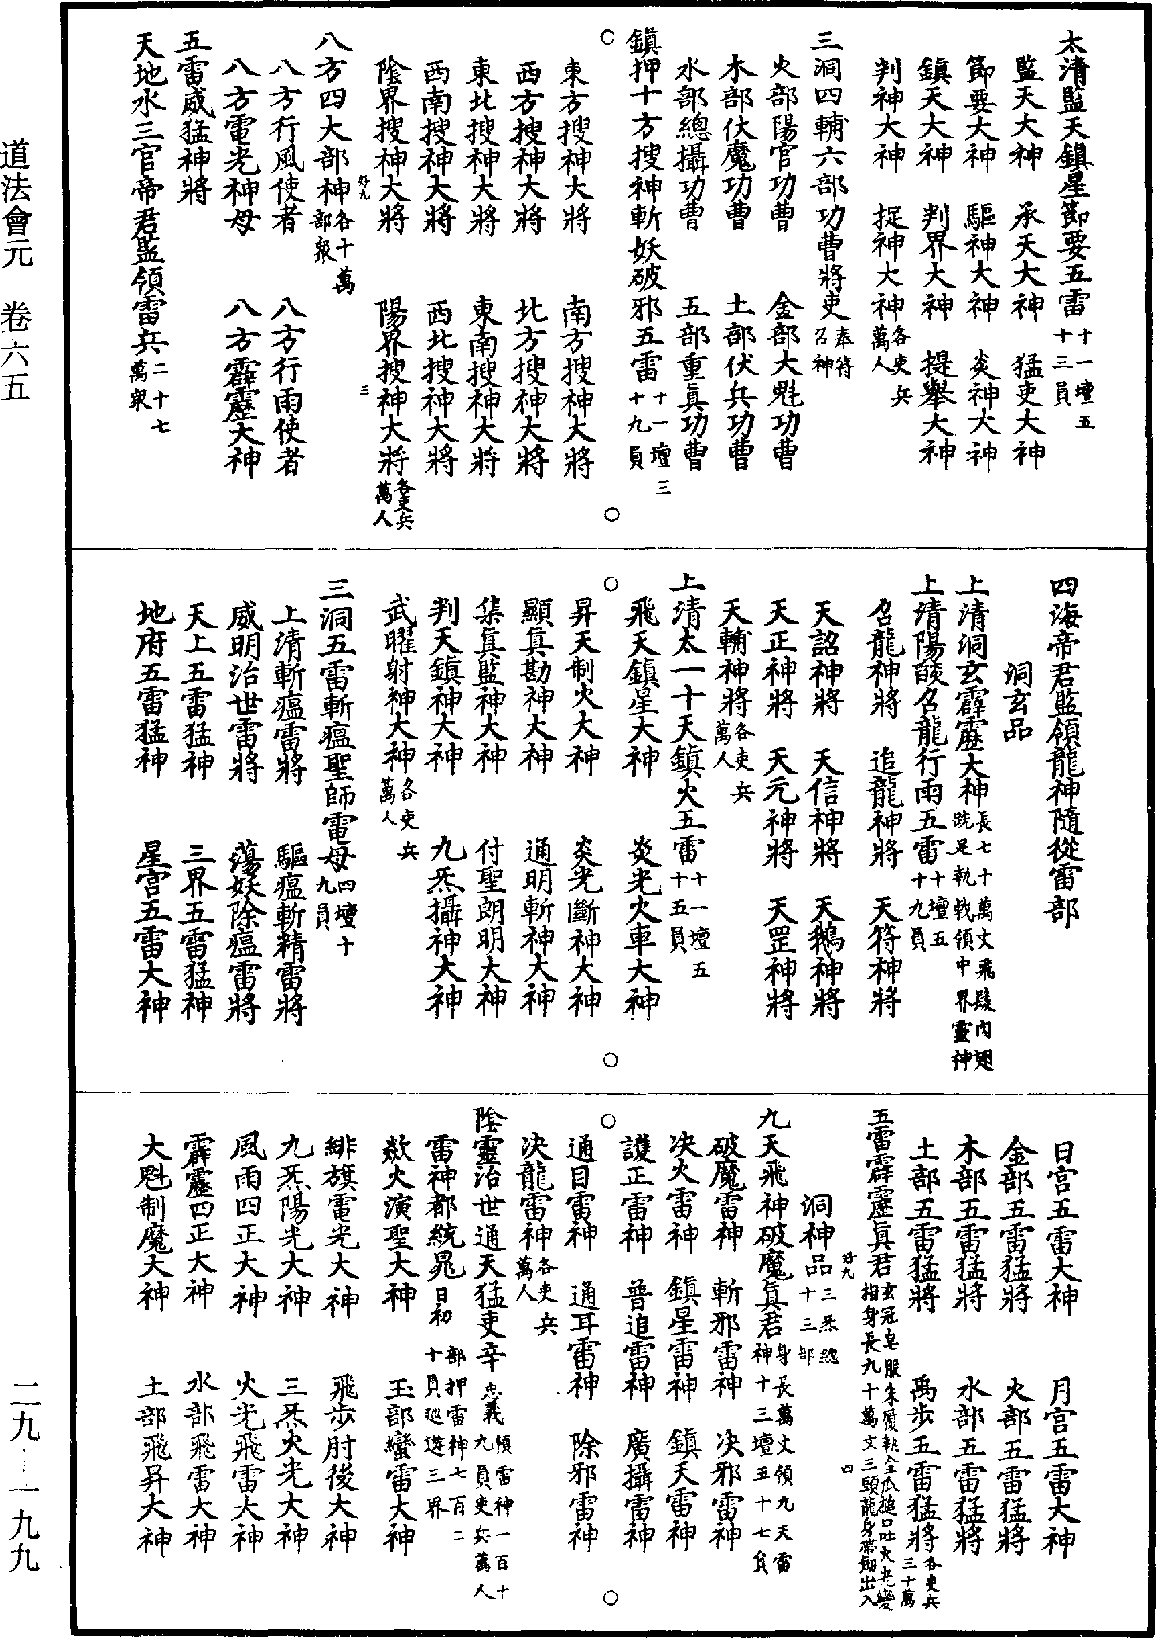 太清監天鎮星節要五雷十一壇五十三員
監天大神　承天大神　猛吏大神
節要大神　驅神大神　炎神大神
鎮天大神　判界大神　提舉大神
判神大神　捉神大神各吏兵萬人
三洞四輔六部功曹將吏奉符召神
火部陽官功曹　金部大魁功曹
木部伏魔功曹　土部伏兵功曹
水部總攝功曹　五部重真功曹
鎮押十方搜神斬妖破邪五雷十一壇三十九員
東方搜神大將　南方搜神大將
西方搜神大將　北方搜神大將
東北搜神大將　東南搜神大將
西南搜神大將　西北搜神大將
陰界搜神大將　陽界搜神大將各吏兵萬人
好九　三
八方四大部神各十萬部眾
八方行風使者　八方行雨使者
八方電光神母　八方霹靂大神
五雷威猛神將
天地水三官帝君監領雷兵二十七萬眾
四海帝君監領龍神隨從雷部
洞玄品
上清洞玄霹靂大神長七十萬丈飛鬚肉翅跣足執戟領中界靈神
上清陽燄召龍行雨五雷十壇五十九員
召龍神將　追龍神將　天符神將
天詔神將　天信神將　天鵝神將
天正神將　天元神將　天罡神將
天輔神將各吏兵萬人
上清太一十天鎮火五雷十一壇五十五員
飛天鎮星大神　炎光火車大神
昇天制火大神　炎光斷神大神
顯真勘神大神　通明斬神大神
集真監神大神　付聖朗明大神
判天鎮神大神　九炁攝神大神
武曜射神大神各吏兵萬人
三洞五雷斬瘟聖師電母四壇十九員
上清斬瘟雷將　驅瘟斬精雷將
威明治世雷將　蕩妖除瘟雷將
天上五雷猛神　三界五雷猛神
地府五雷猛神　星宫五雷大神
日宫五雷大神　月宫五雷大神
金部五雷猛將　火部五雷猛將
木部五雷猛將　水部五雷猛將
土部五雷猛將　禹步五雷猛將各吏兵三十萬
五雷霹靂真君玄冠皂服朱履執金瓜搥口吐火光變相身長九十萬丈三頭龍身帶劒出入
好九　四
洞神品三炁總十三部
九天飛神破魔真君身長萬丈領九天雷神十三壇五十七員
破魔雷神　斬邪雷神　决邪雷神
决火雷神　鎮星雷神　鎮天雷神
護正雷神　普追雷神　廣攝雷神
通目雷神　通耳雷神　除邪雷神
决龍雷神各吏兵萬人
陰靈治世通天猛吏辛忠義領雷神一百十九員吏兵萬人
雷神都統晁日初部押雷神七百二十員巡遊三界
歘火演聖大神　玉部蠻雷大神
緋旗電光大神　飛步肘後大神
九炁陽光大神　三炁火光大神
風雨四正大神　火光飛雷大神
霹靂四正大神　水部飛雷大神
大魁制魔大神　土部飛昇大神
道法會元　卷六五
二九—一九九